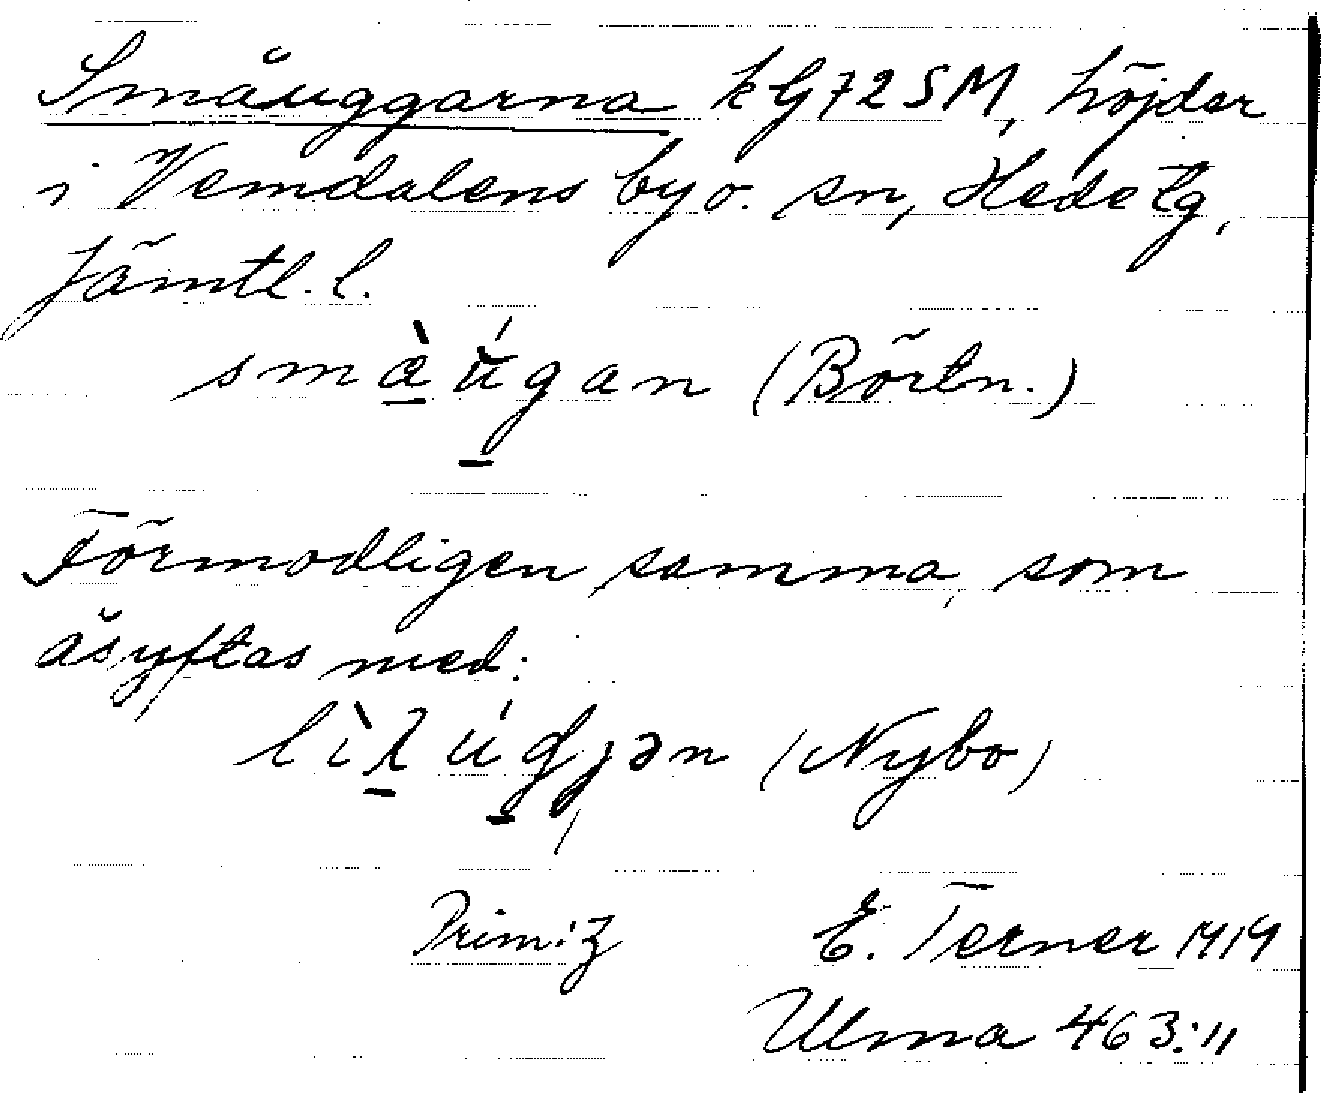 Småuggarna kG72SM, höjder
i Vemdalens by o. sn, Hede tg,
Jämtl. l.
smàúgan (Börtn.)
Förmodligen samma, som
åsyftas med:
(Nybo)
Prim: Z E. Terner 1919
Ulma 463:11